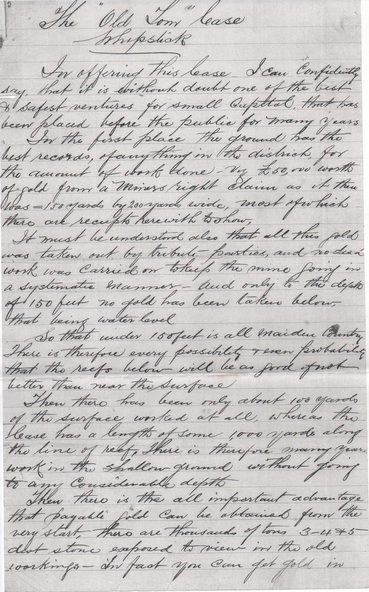 The "Old Tom" lease
Whipstick
In offering this lease I can confidently
say, that it is without doubt one of the best
& safest ventures for small Capital, that has
been placed before the public for many years
In the first place the ground has the
best records, of anything in the district for
the amount of work done - Viz £50,000 worth
of gold from a Miners right Claim as it then
was - 150 yards by 200 yards wide, most of which
there are recepts herewith to show,
It must be understood also that all this gold
was taken out by tribute parties, and no dead
work was carried on to keep the mine going in
a systematic manner - And only to the depth
of 150 feet no gold has been taken below
that being water level
So that under 150 feet is all Maiden Country
There is therefore every possibility & even probability
that the reefs below will be as good if not
better than near the surface
Then there has been only about 100 yards
of the surface worked at all, whereas the
lease has a length of some 1000 yards along
the line of reef, There is therefore many years
work in the shallow ground without going
to any Considerable depth
Then there is the all important advantage
that payable gold can be obtained from the
very start, there are thousands of tons 3-4 & 5
dwt stone exposed to view in the old
workings - In fact you can get gold in